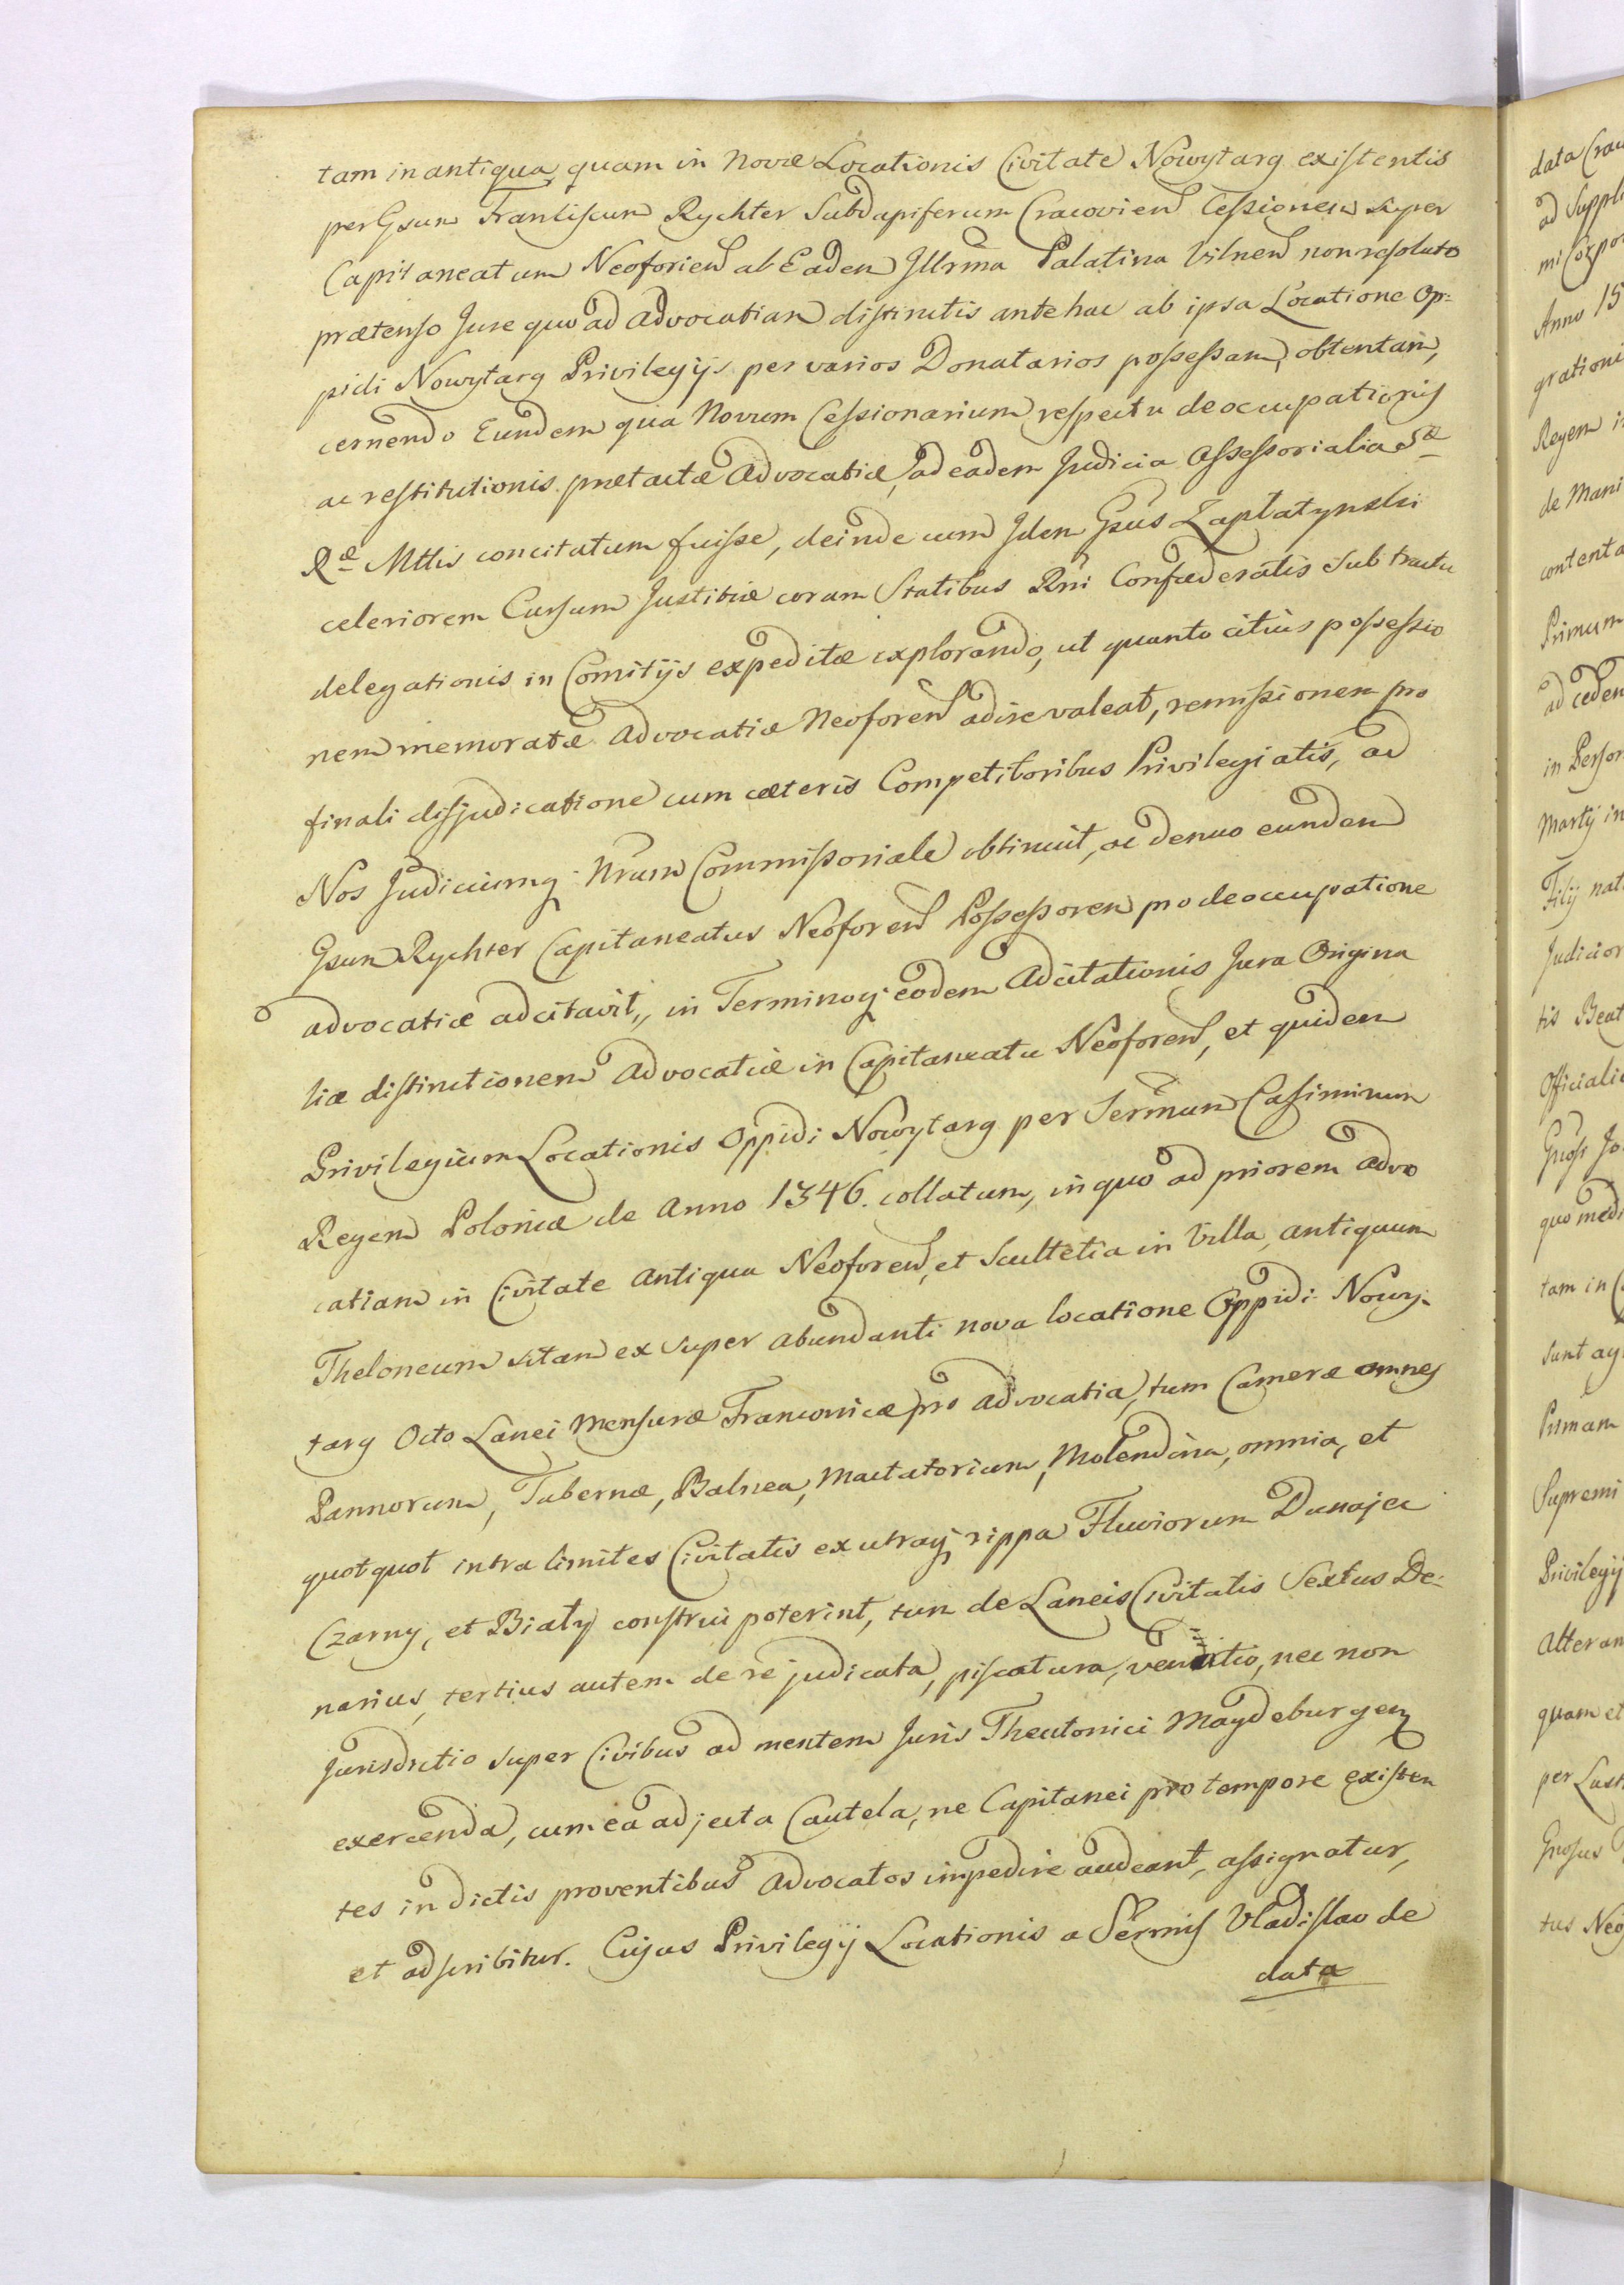 tam in antiqua, quam in Novæ Locationis Civitate Nowytarg existentis
per Gsum Franciscum Rychter Subdapiferum Cracovien Cessionem super
Capitaneatum Neoforien ab Eadem Illrma Palatina Vilnen non resoluto
prætenso Jure quo ad Advocatiam distinctis antehac ab ipsa Locatione Op=
pidi Nowytarg Privilegijs per varios Donatarios possessam, obtentam,
cernendo Eundem qua Novum Cessionarium respectu deoccupationis
ac restitutionis prætactæ Advocatiæ, ad eadem Judicia Assessorialia Sæ
Ræ Mttis concitatum fuisse, deinde cum Idem Gsus Zaplatynski
celeriorem Cursum Justitiæ coram Statibus Rni Confœderatis sub tractu
delegationis in Comitijs expeditæ explorando, ut quanto citius possessio
nem memoratæ Advocatiæ Neoforen adire valeat, remissionem pro
finali disjudicatione cum cæteris Competitoribus Privilegiatis, ad
Nos Judiciumq; Nrum Commissoriale obtinuit, ac denuo eundem
Gsum Rychter Capitaneatus Neoforen Possessorem pro deoccupatione
advocatiæ adcitavit, in Terminoq; eodem Adcitationis Jura Origina
lia distinctionem Advocatiæ in Capitaneatu Neoforen, et quidem
Privilegium Locationis Oppidi Nowytarg per Sermum Casimirum
Regem Poloniæ de Anno 1346. collatum, in quo ad priorem advo
catiam in Civitate Antiqua Neoforen, et Scultetia in Villa, antiquum
Theloneum sitam ex super abundanti nova locatione Oppidi Nowy=
targ Octo Lanei Mensuræ Franconicæ pro Advocatia, tum Cameræ omnes
Pannorum, Tabernæ, Balnea, Mactatorium, Molendina, omnia, et
quotquot intra limites Civitatis ex utraq; rippa Fluviorum Dunajec
Czarny, et Biały construi poterint, tum de Laneis Civitatis Sextus De=
narius, tertius autem de re judicata, piscatura, venatio, nec non
Jurisdictio super Civibus ad mentem Juris Theutonici Maydeburgen
exercenda, cum ea adjecta Cautela, ne Capitanei pro tempore existen
tes in dictis proventibus Advocatos impedire audeant, assignatur,
et adscribitur. Cujus Privilegij Locationis a Sermis Vladislao de
data
data Crac
ad Suppl
mi Corpo
Anno 15
grationi
Regem i
de Mani
contenta
Primum
ad ceden
in Person
Martij in
Filij nat
Judicior
tis Beat
Officiali
Gnosi Jo
quo medi
tam in C
sunt ag
Primam
Supremi
Privilegij
Alteram
quam et
per Lust
Gnosus
tus Neo